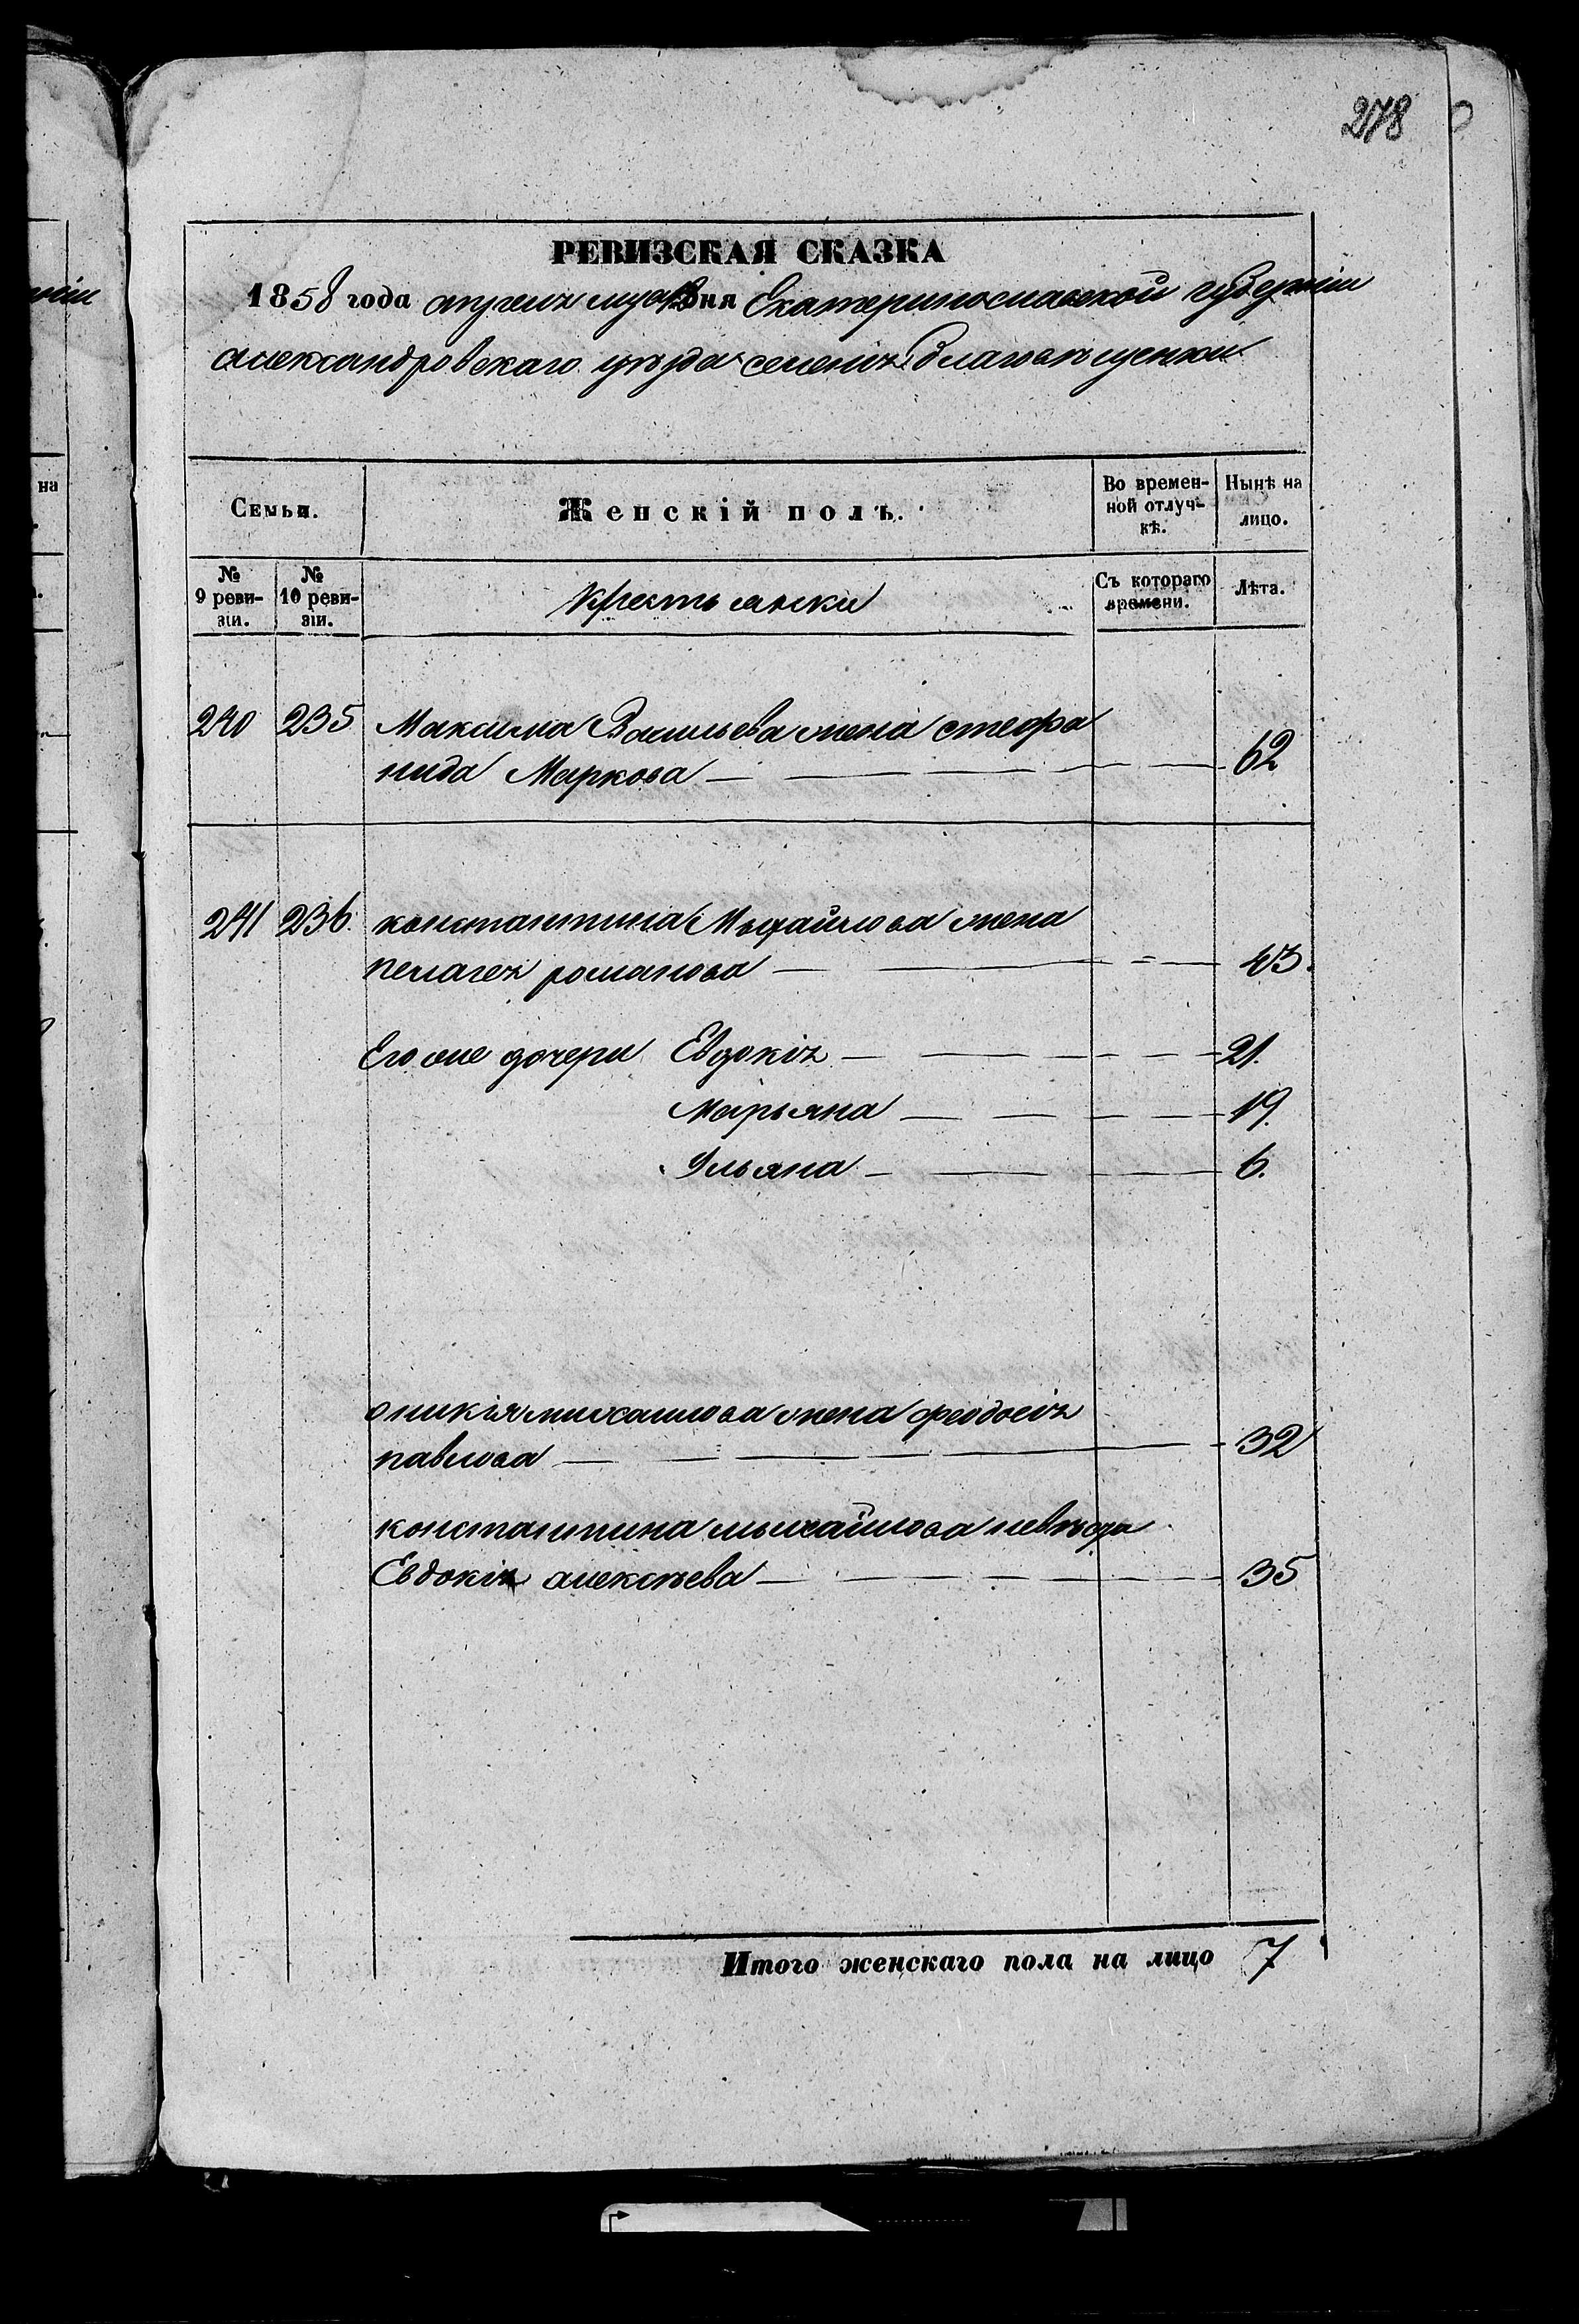 278
РЕВИЗСКАЯ СКАЗКА
1858 года апреля мца дня Екатеринославской губерніи
александровскаго уѣзда селенія благовѣщенки
Семьи. Женскій полъ. Во времен-ной отлуч-кѣ. Нынѣ на лицо.
№ 9 реви-зіи. № 10 реви-зіи. Крестьянки Съ котораго времени. Лѣта.
240 235 Максима Васильева жена стефа
нида Маркова 62
241 236. константина Михайлова жена
пелагея романова 43.
Его же дочери Евдокія 21.
Марьяна 19.
Ульяна 6.
оникія михайлова жена феодосія
павлова 32
константина михайлова невѣстка
Евдокія алексѣева 35
Итого женскаго пола на лицо 7
на